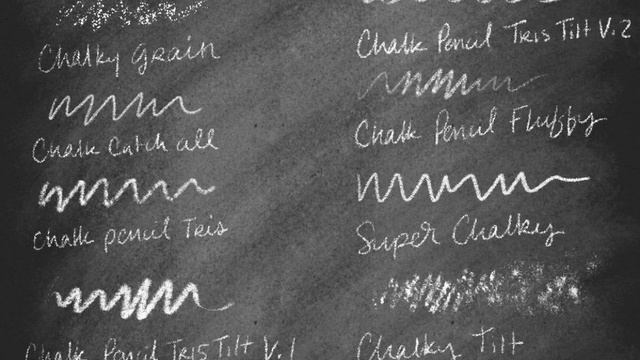 Chalky Grain
Chalk Catch all
Chalk pencil Tris
Chalk Pencil Tris Tilt V.1
Chalk Pencil Tris Tilt V.2
Chalk Pencil Fluffy
Super Chalky
Chalky Tilt